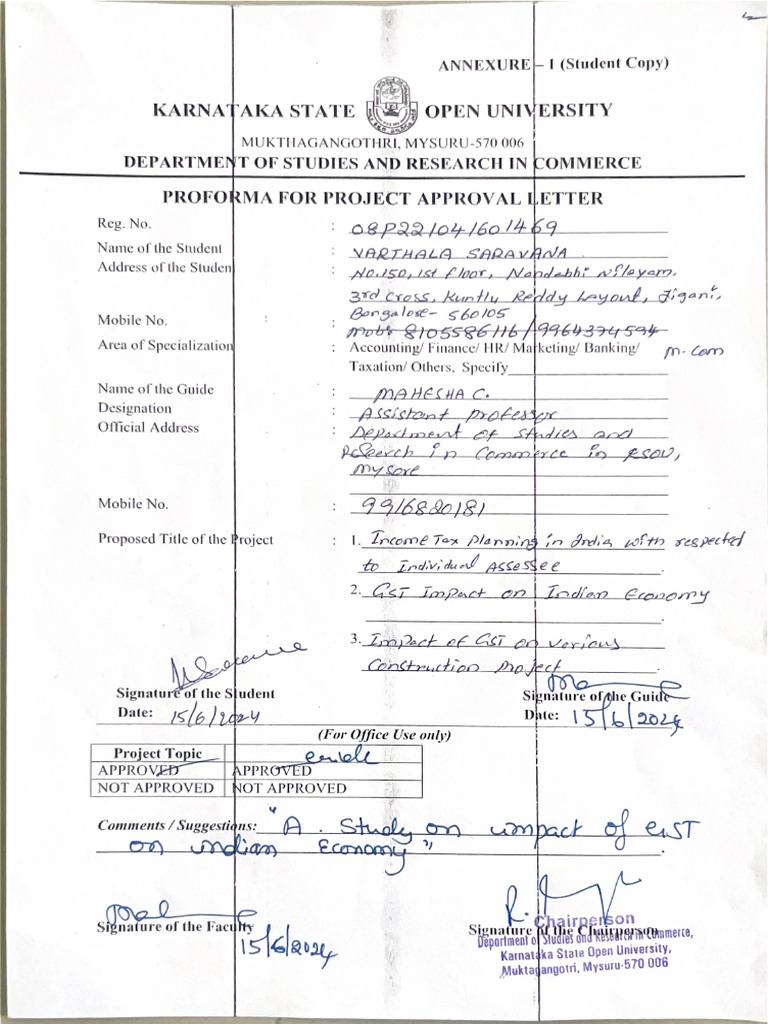 ANNEXURE – 1 (Student Copy)
KARNATAKA STATE OPEN UNIVERSITY
MUKTHAGANGOTHRI, MYSURU-570 006
DEPARTMENT OF STUDIES AND RESEARCH IN COMMERCE
PROFORMA FOR PROJECT APPROVAL LETTER
Reg. No. : 08P221041601469
Name of the Student : VARTHALA SARAVANA
Address of the Student : No.150, 1st floor, Nandabhi Nilayam,
3rd Cross, Kuntlu Reddy Layout, Jigani,
Bangalore- 560105
Mobile No. : Mob: 8105586116 / 9964374594
Area of Specialization : Accounting/ Finance/ HR/ Marketing/ Banking/ M.Com
Taxation/ Others, Specify
Name of the Guide : MAHESHA C.
Designation : Assistant professor
Official Address : Department of Studies and
Research in Commerce in KSOU,
Mysore
Mobile No. : 9916820181
Proposed Title of the Project : 1. Income Tax Planning in India with respected
to Individual Assessee
2. GST Impact on Indian Economy
3. Impact of GST on various
Construction Project
Signature of the Student Signature of the Guide
Date: 15/6/2024 Date: 15/6/2024
(For Office Use only)
Project Topic
APPROVED APPROVED
NOT APPROVED NOT APPROVED
Comments / Suggestions: "A Study on impact of GST
on indian Economy"
Signature of the Faculty Signature of the Chairperson
15/6/2024
Chairperson
Department of Studies and Research in Commerce,
Karnataka State Open University,
Muktagangotri, Mysuru-570 006